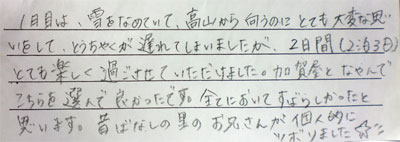 1日目は、雪をなめていて、高山から向うのにとても大変な思
いをして、とうちゃくが遅れてしまいましたが、2日間(2泊3日)
とても楽しく過ごさせていただけました。加賀屋となやんで
こちらを選んで良かったです。全てにおいてすばらしかったと
思います。昔ばなしの里のお兄さんが個人的に
ツボりました☆